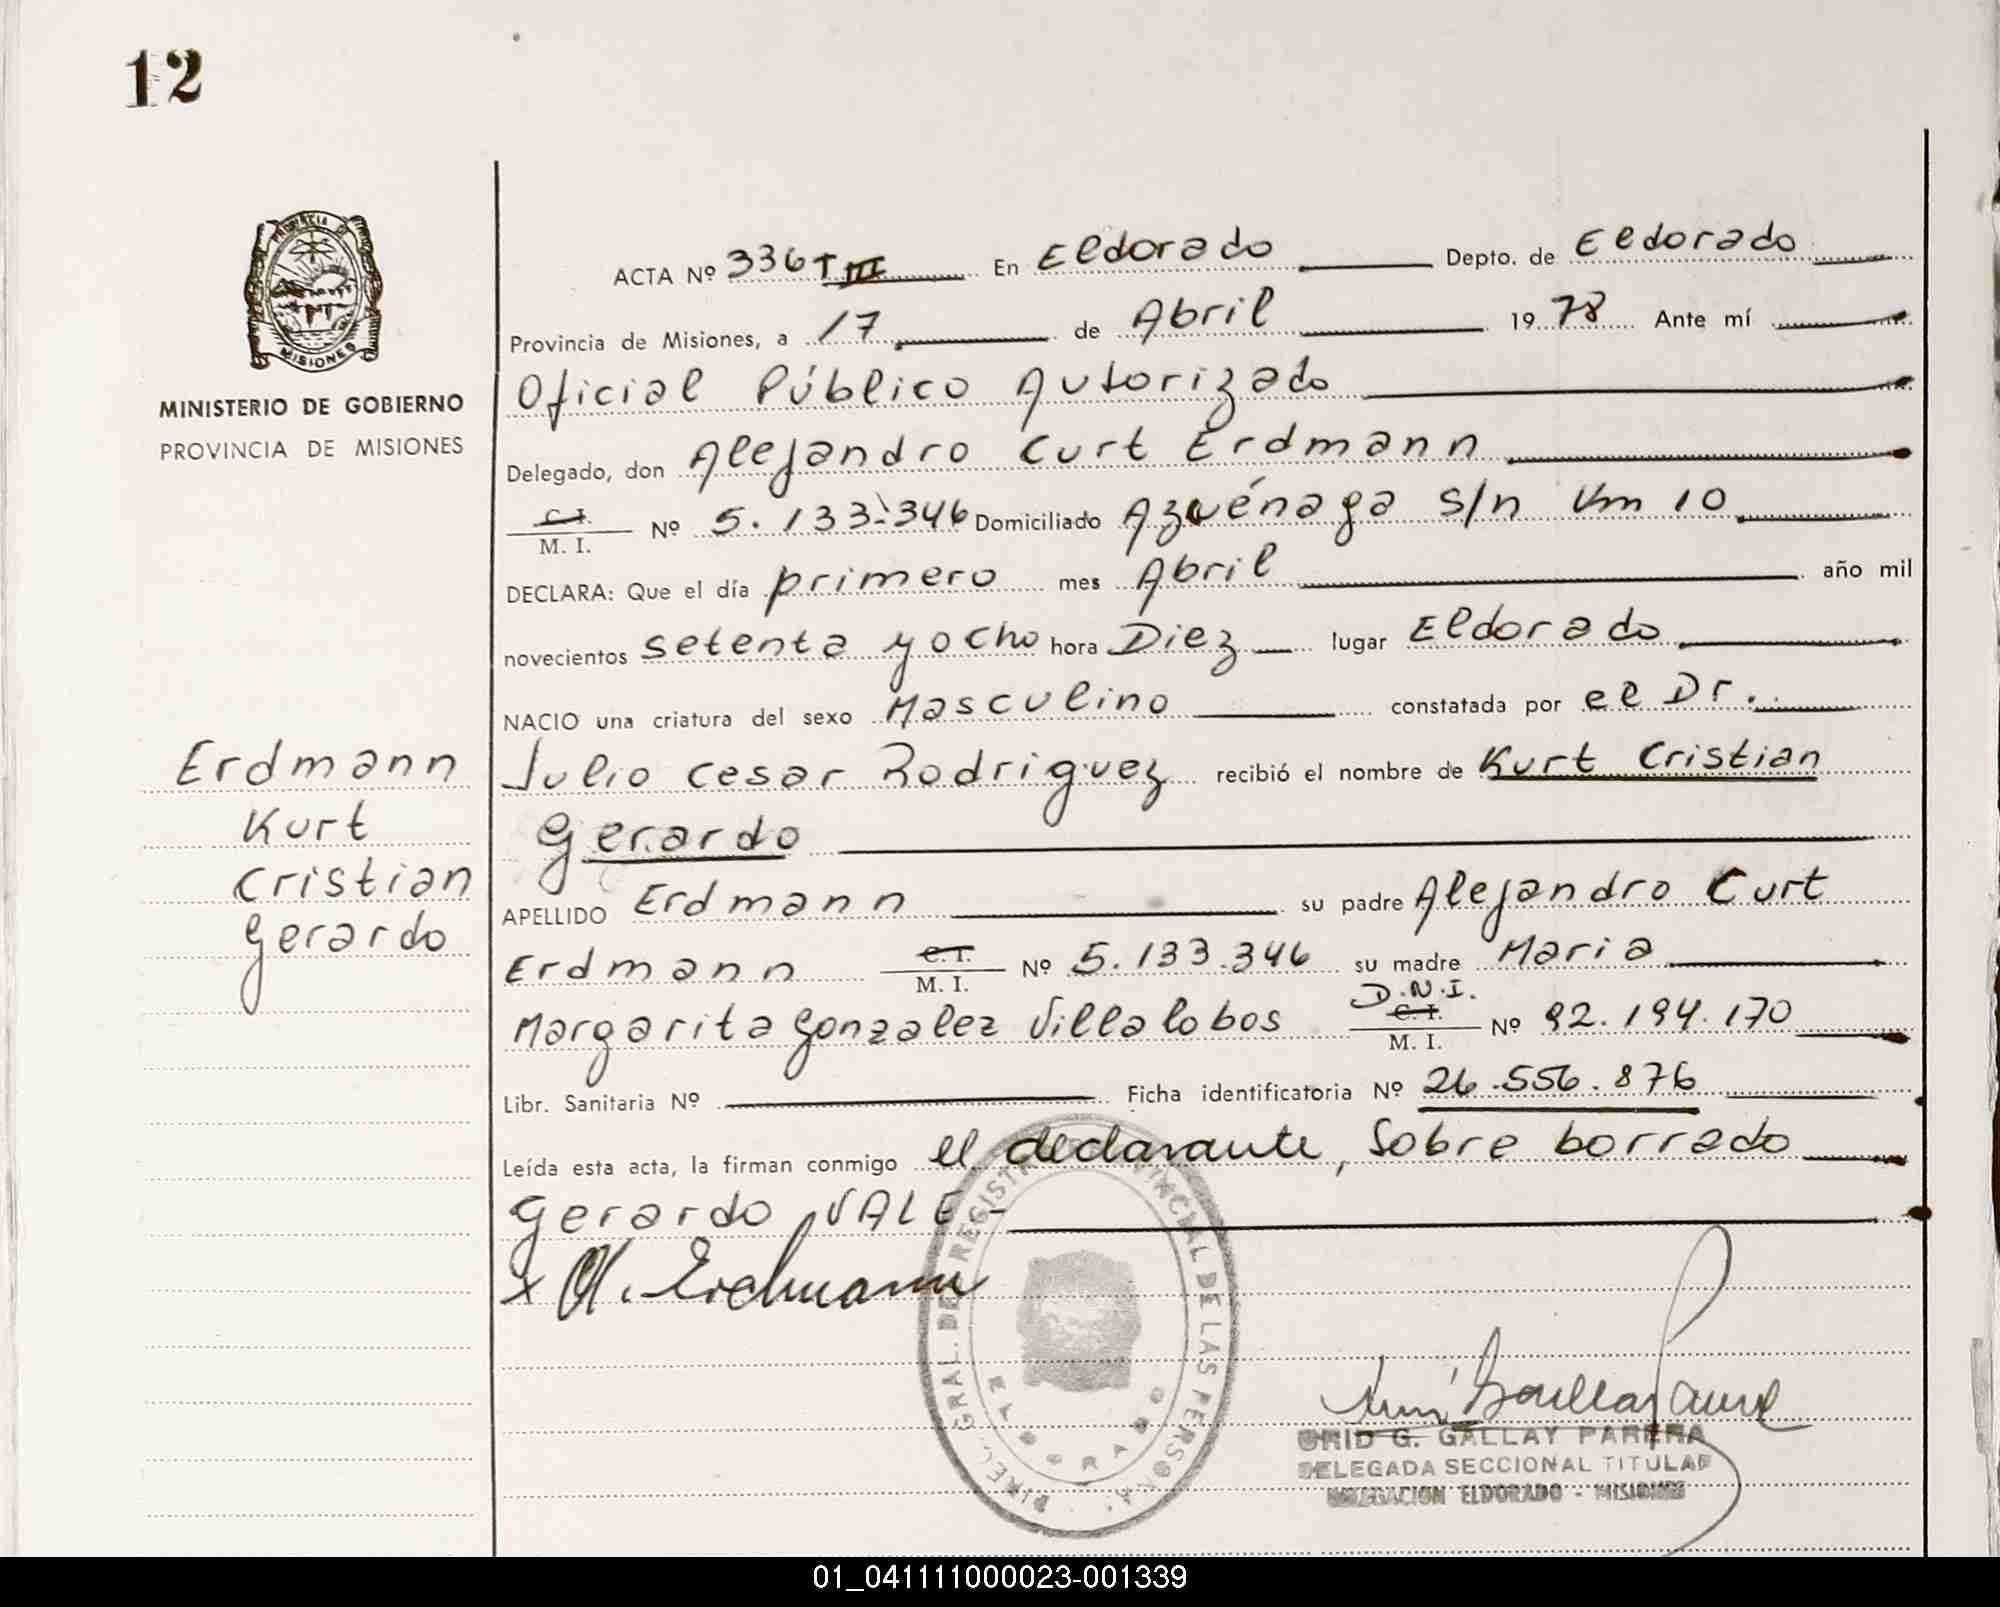 12
PROVINCIA DE
MISIONES
MINISTERIO DE GOBIERNO
PROVINCIA DE MISIONES
Erdmann
Kurt
Cristian
Gerardo
ACTA Nº 336 T III En Eldorado Depto. de Eldorado
Provincia de Misiones, a 17 de Abril 1978 Ante mí
Oficial Público Autorizado
Delegado, don Alejandro Curt Erdmann
C. I.
M. I. Nº 5.133.346 Domiciliado Azuénaga s/n Km 10
DECLARA: Que el día primero mes Abril año mil
novecientos setenta y ocho hora Diez lugar Eldorado
NACIO una criatura del sexo Masculino constatada por el Dr.
Julio Cesar Rodriguez recibió el nombre de Kurt Cristian
Gerardo
APELLIDO Erdmann su padre Alejandro Curt
Erdmann C. I. M. I. Nº 5.133.346 su madre Maria
Margarita Gonzalez Villalobos D.N.I. C. I. M. I. Nº 92.194.170
Libr. Sanitaria Nº Ficha identificatoria Nº 26.556.876
Leída esta acta, la firman conmigo el declarante, Sobre borrado
Gerardo VALE -
x A. Erdmann
DIREC. GRAL. DE REGISTRO PROVINCIAL DE LAS PERSONAS
ELDORADO
G. GALLAY PARERA
DELEGADA SECCIONAL TITULAR
DELEGACION ELDORADO - MISIONES
01_041111000023-001339